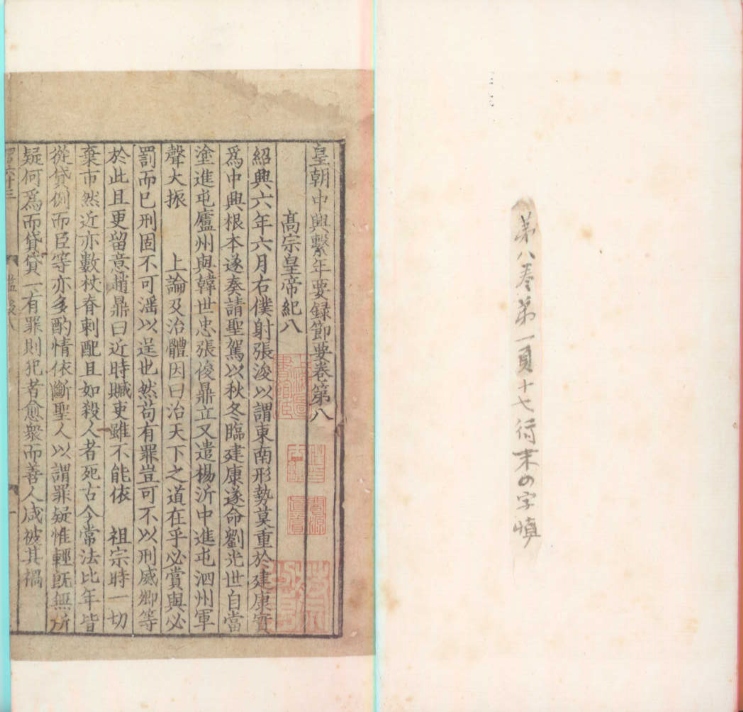 第八巻第一頁十七行末の字慎
皇朝中興繫年要録節要卷第八
髙宗皇帝紀八
紹興六年六月右僕射張浚以謂東南形勢莫重於建康實
爲中興根本遂奏請聖駕以秋冬臨建康遂命劉光世自當
塗進屯廬州與韓世忠張俊鼎立又遣楊沂中進屯泗州軍
聲大振 上論及治體因曰治天下之道在乎必賞與必
罰而已刑固不可滛以逞也然苟有罪豈可不以刑威卿等
於此且更留意趙鼎曰近時贓吏雖不能依 祖宗時一切
棄市然近亦數杖脊刺配且如殺人者死古今當法比年皆
從貸例而臣等亦多酌情依斷聖人以謂罪疑惟輕旣無所
疑何爲而貸貸一有罪則犯者愈衆而善人咸被其禍